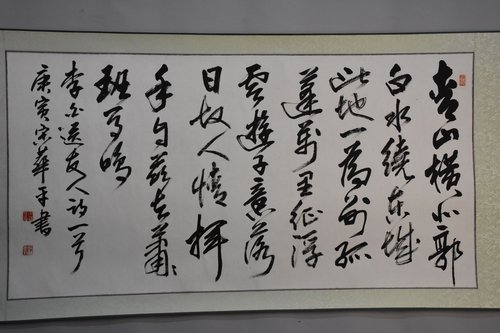 青山横北郭
白水绕东城
此地一为别孤
蓬万里征浮
云游子意落
日故人情挥
手自兹去萧〻
班马鸣
李白送友人诗一首
庚寅宋华平书